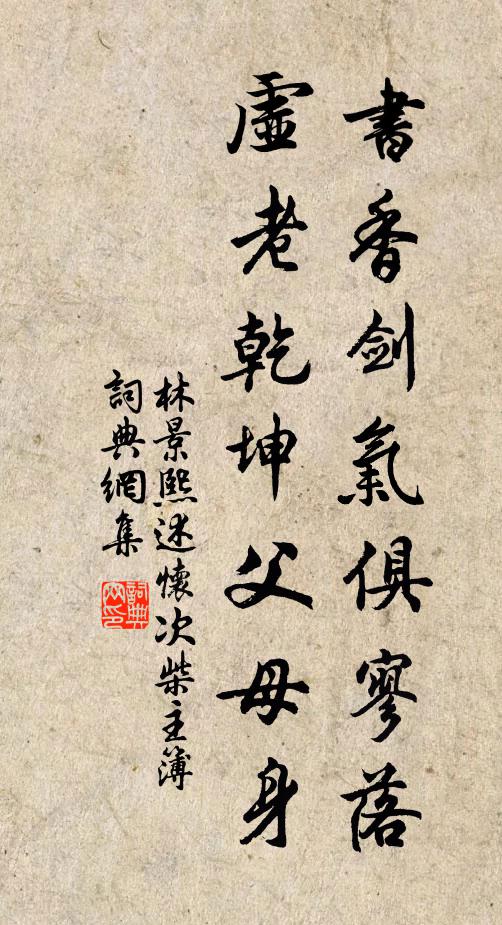 書香劍氣俱寥落
虛老乾坤父母身
林景熙述懷次柴主簿
詞典網集
詞典网印